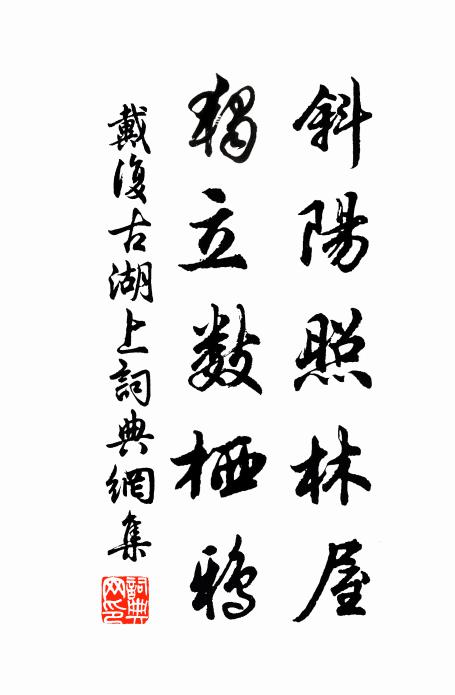 斜陽照林屋
獨立數栖鴉
戴復古湖上詞典網集
詞典網印